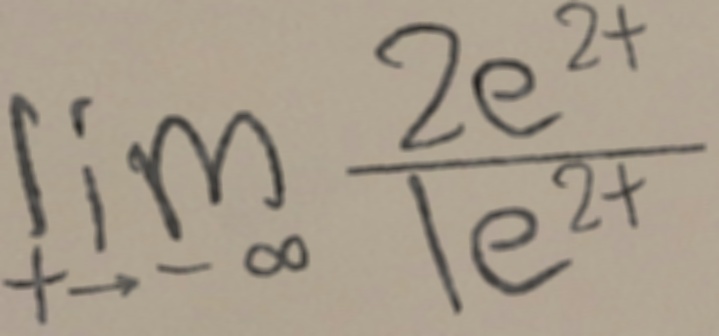 \lim_{t \to -\infty} \frac{2e^{2t}}{1e^{2t}}